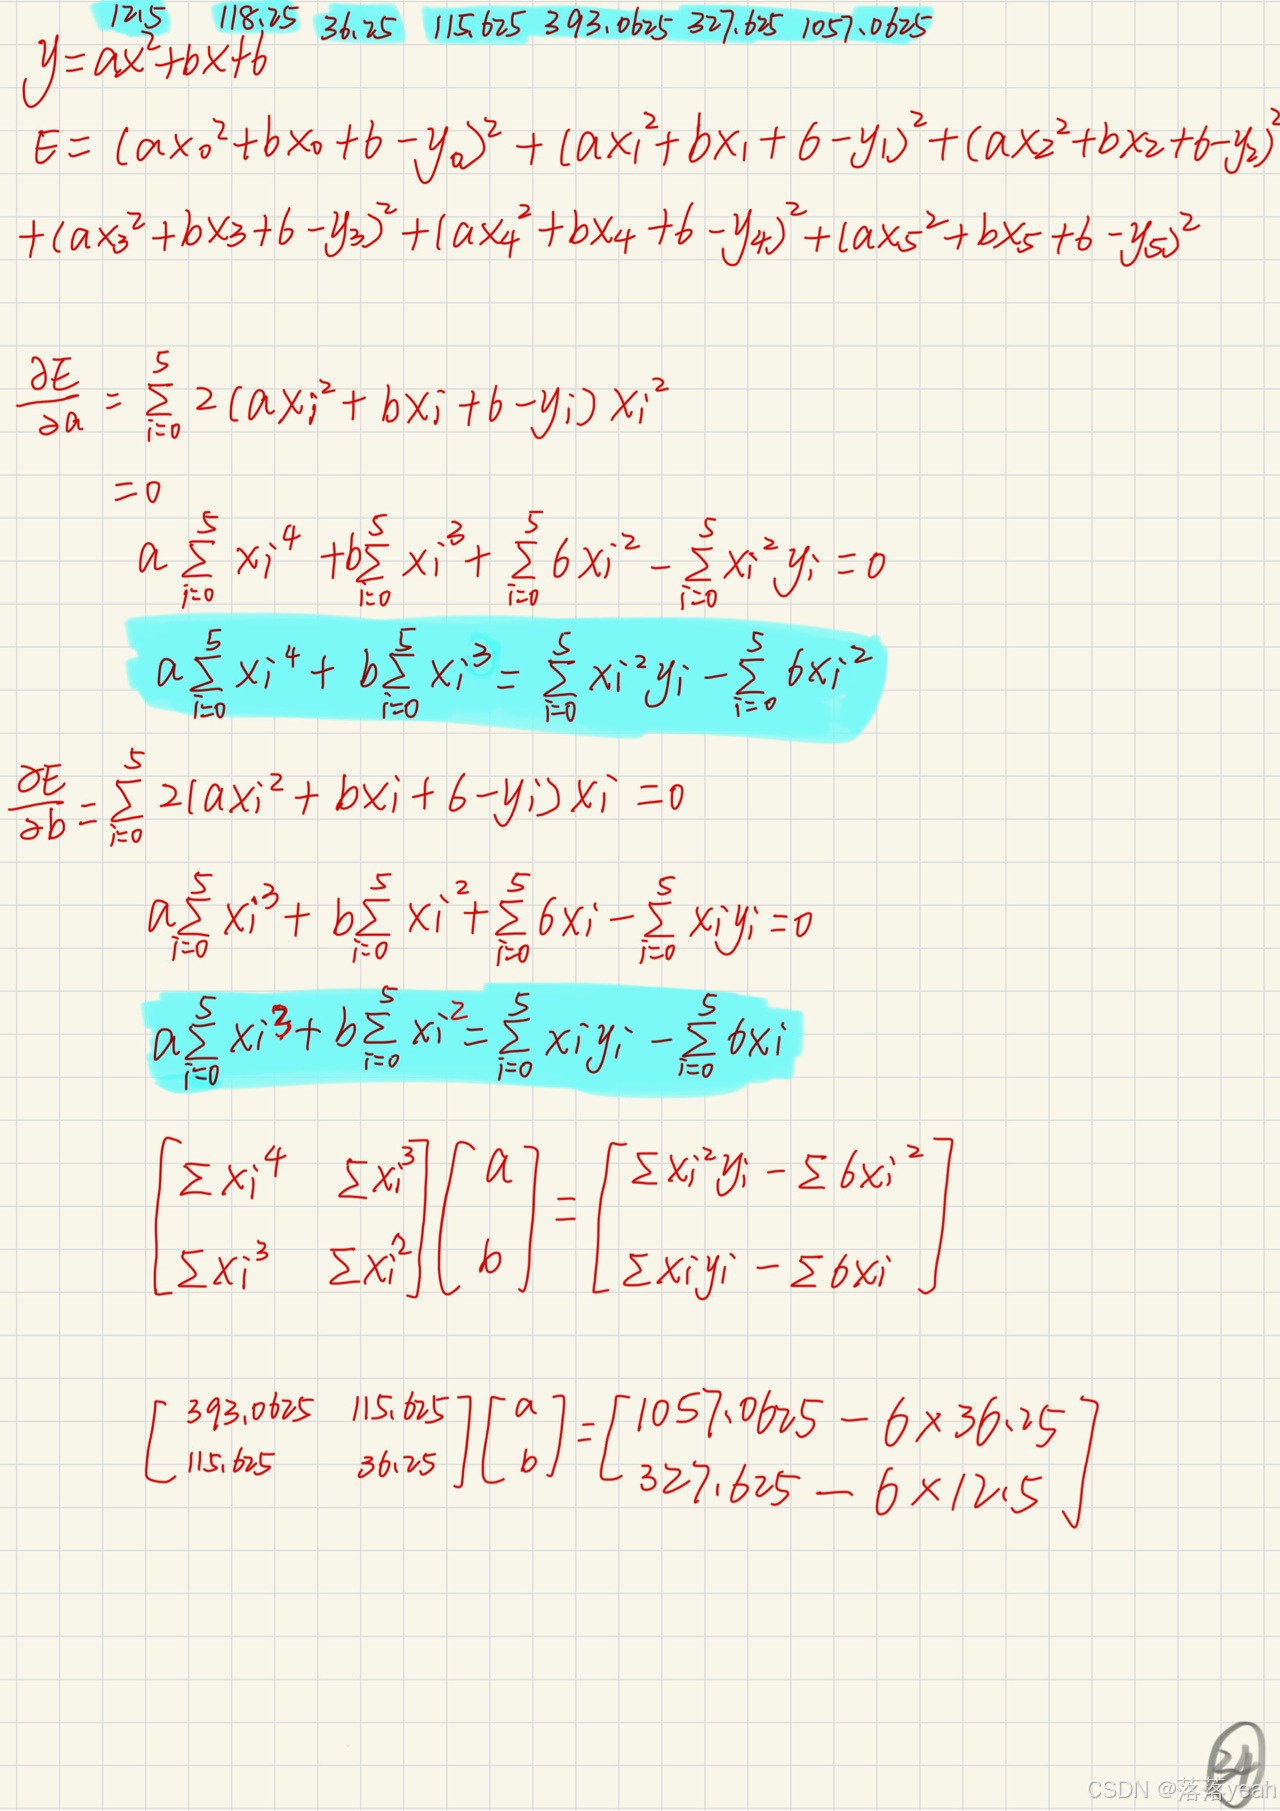 12.5 118.25 36.25 115.625 393.0625 327.625 1057.0625
y=ax²+bx+6
E= (ax₀²+bx₀+6-y₀)² + (ax₁²+bx₁+6-y₁)²+(ax₂²+bx₂+6-y₂)²
+(ax₃²+bx₃+6-y₃)²+(ax₄²+bx₄+6-y₄)²+(ax₅²+bx₅+6-y₅)²
∂E/∂a = ∑_{i=0}^{5} 2(axᵢ²+bxᵢ+6-yᵢ)xᵢ²
=0
a∑_{i=0}^{5} xᵢ⁴ +b∑_{i=0}^{5} xᵢ³+ ∑_{i=0}^{5} 6xᵢ² - ∑_{i=0}^{5} xᵢ²yᵢ=0
a∑_{i=0}^{5} xᵢ⁴+ b∑_{i=0}^{5} xᵢ³= ∑_{i=0}^{5} xᵢ²yᵢ - ∑_{i=0}^{5} 6xᵢ²
∂E/∂b = ∑_{i=0}^{5} 2(axᵢ²+bxᵢ+6-yᵢ)xᵢ =0
a∑_{i=0}^{5} xᵢ³+ b∑_{i=0}^{5} xᵢ²+∑_{i=0}^{5} 6xᵢ - ∑_{i=0}^{5} xᵢyᵢ=0
a∑_{i=0}^{5} xᵢ³+ b∑_{i=0}^{5} xᵢ²=∑_{i=0}^{5} xᵢyᵢ - ∑_{i=0}^{5} 6xᵢ
[∑xᵢ⁴ ∑xᵢ³] [a] = [∑xᵢ²yᵢ - ∑6xᵢ²]
[∑xᵢ³ ∑xᵢ²] [b] [∑xᵢyᵢ - ∑6xᵢ]
[393.0625 115.625] [a] = [1057.0625 - 6×36.25]
[115.625 36.25] [b] [327.625 - 6×12.5]
34
CSDN @落落yeah